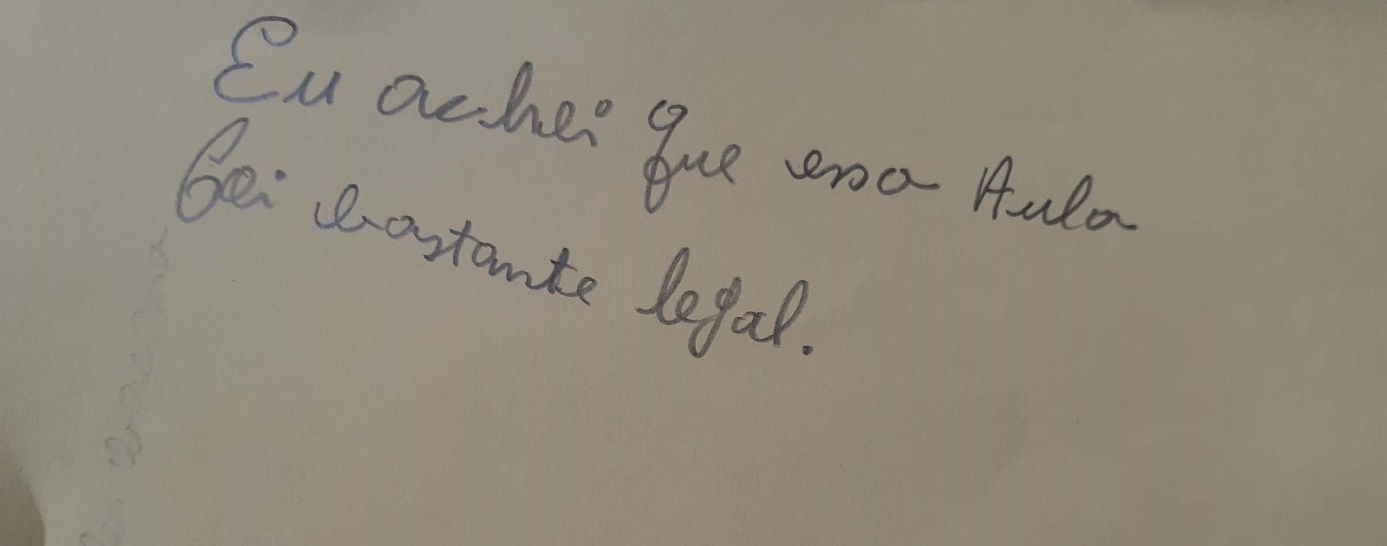 Eu achei que essa Aula
foi bastante legal.